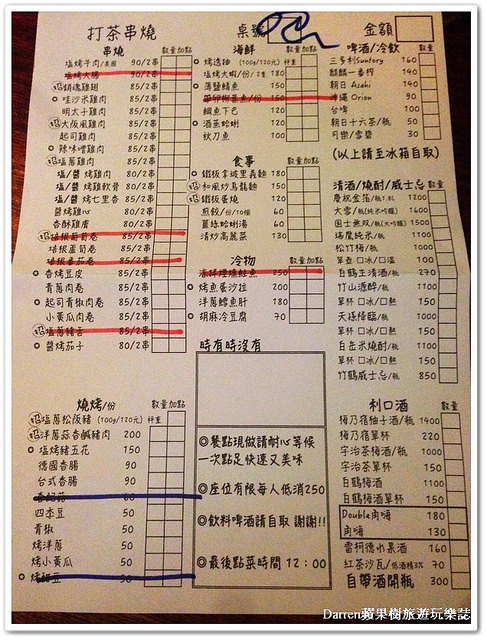 打茶串燒
桌號
金額
串燒 數量加點
塩烤牛肉/美國 90/2串
塩烤大腸 90/2串
招 銷魂雞翅 80/2串
哇沙米雞肉 80/2串
明太子雞肉 80/2串
招 大阪風雞肉 80/2串
起司雞肉 80/2串
辣味噌雞肉 80/2串
招 塩蔥雞肉 80/2串
塩/醬 烤雞肉 80/2串
塩/醬 烤雞軟骨 80/2串
塩/醬 烤七里香 85/2串
醬烤雞心 80/2串
香酥雞膚 80/2串
培根蘆筍卷 85/2串
培根蔥卷 85/2串
培根番茄卷 85/2串
香烤豆皮 85/2串
青蔥肉卷 85/2串
起司青椒肉卷 85/2串
小黃瓜肉卷 85/2串
招 塩蔥豬舌 85/2串
醬烤茄子 80/2串
燒烤/份 數量加點
招 塩蔥松阪豬 (100g/120元) 秤重
招 洋蔥蒜香鹹豬肉 200
塩烤豬五花 150
德國香腸 90
台式香腸 90
香菇 60
四季豆 50
青椒 50
烤洋蔥 50
烤小黃瓜 50
海鮮 數量加點
烤透抽 (100g/120元) 秤重
塩烤大蝦/份/2隻 180
薄鹽鯖魚 150
帶卵柳葉魚/份 150
鯛魚下巴 120
酒蒸蛤蜊 120
秋刀魚 100
食事 數量加點
鐵板拿坡里義麵 150
招 和風炒烏龍麵 150
鐵板蛋燒 150
煎餃/份/10個 60
薑絲蛤蜊湯 60
清炒高麗菜 130
冷物 數量加點
冰杯煙燻鮭魚 250
烤魚蛋沙拉 200
洋蔥鱈魚肝 180
胡麻冷豆腐 70
時有時沒有
◎餐點現做請耐心等候
一次點足快速又美味
◎座位有限每人低消250
◎飲料啤酒請自取 謝謝!!
◎最後點菜時間 12：00
啤酒/冷飲 數量
三多利Suntory 160
麒麟一番榨 140
朝日 Asahi 140
沖繩 Orion 90
台啤 100
朝日十六茶/瓶 50
可樂/雪碧 30
(以上請至冰箱自取)
清酒/燒酎/威士忌 數量
慶祝金箔/瓶1.8L 1200
大雪/瓶(純米吟釀) 1600
国士無双/瓶(大吟釀) 1500
瑞鷹純米/瓶 1100
松竹梅/瓶 1100
單壺 □冰/□溫 100
白鶴生清酒/瓶 270
竹山源醉/瓶 1100
單杯 □冰/□熱 150
天孫降臨/瓶 1000
單杯 □冰/□熱 150
白岳米燒酎/瓶 1100
單杯 □冰/□熱 150
竹鶴威士忌/瓶 850
利口酒 數量
梅乃宿柚子酒/瓶 1900
梅乃宿單杯 220
宇治茶梅酒/瓶 1100
宇治茶單杯 150
白鶴梅酒 1100
白鶴梅酒單杯 150
Double肉嗨 180
肉嗨 130
雷柯德水果酒 160
紅茶沙瓦/低酒精3% 70
自帶酒開瓶 300
Darren蘋果樹旅遊玩樂誌